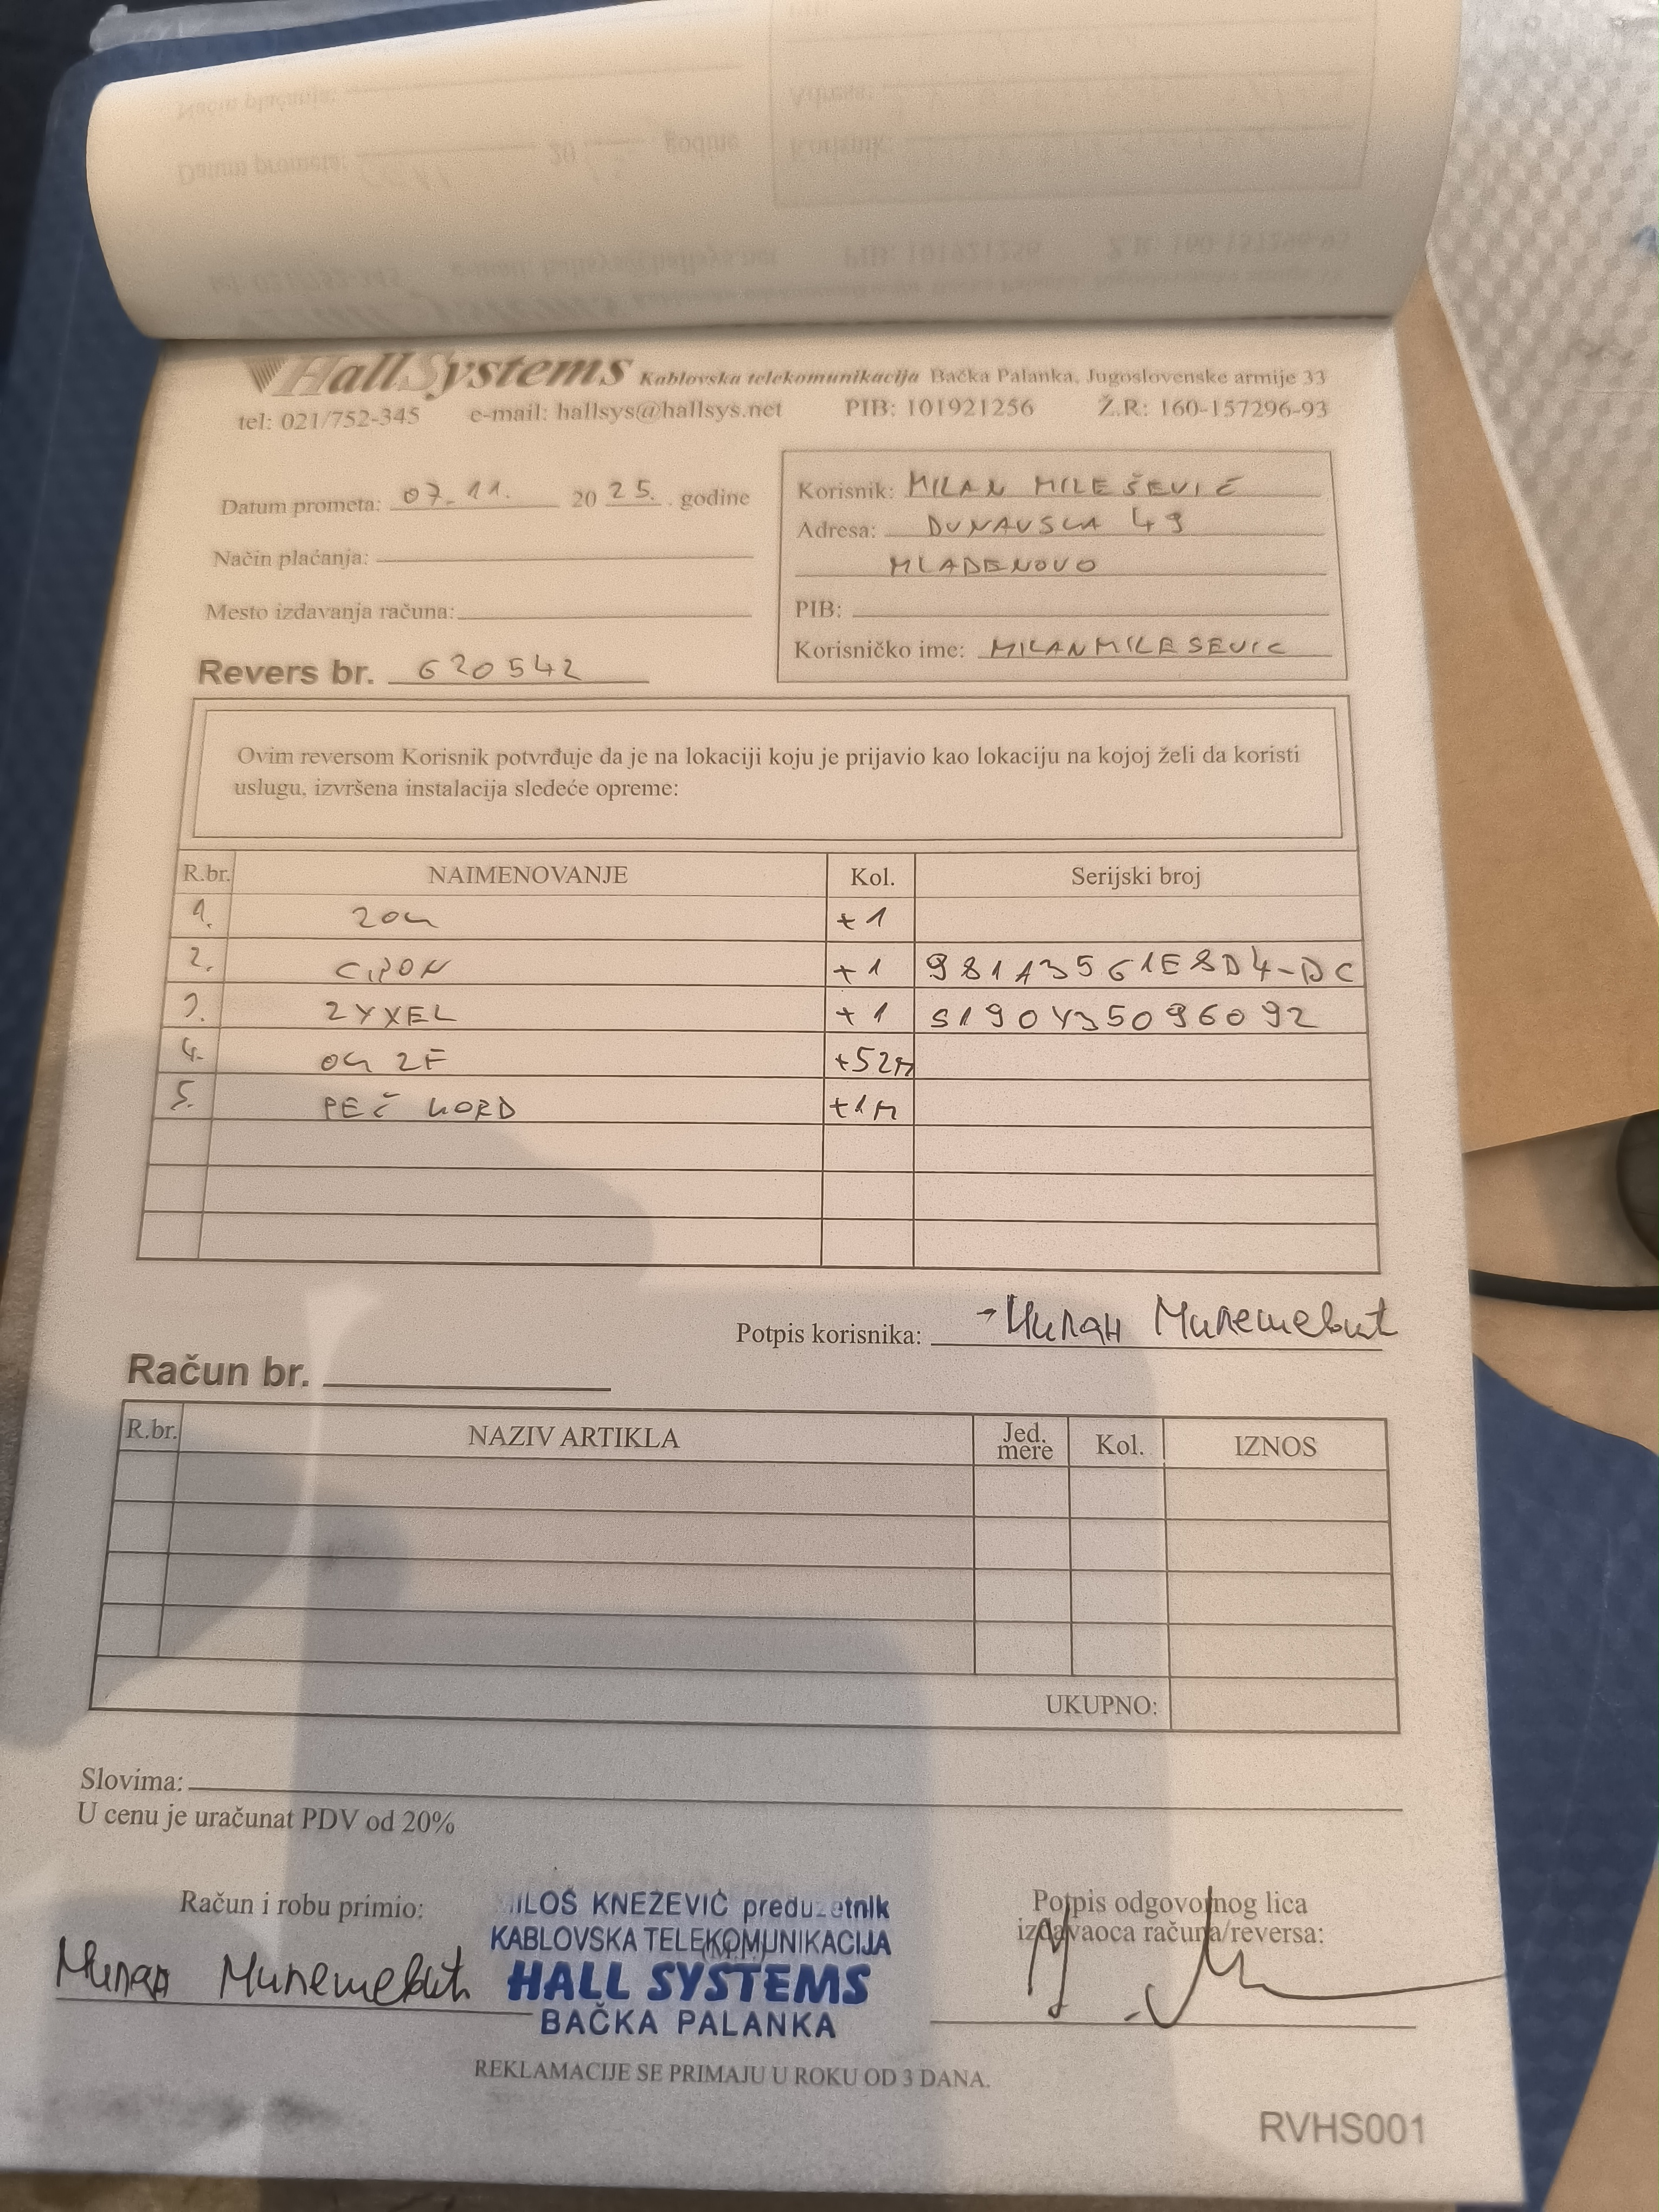 Hall Systems Kablovska telekomunikacija Bačka Palanka, Jugoslovenske armije 33
tel: 021/752-345 e-mail: hallsys@hallsys.net PIB: 101921256 Ž.R: 160-157296-93
Datum prometa: 07.11. 2025. godine
Način plaćanja:
Mesto izdavanja računa:
Revers br. 620542
Korisnik: MILAN MILEŠEVIĆ
Adresa: DUNAVSKA 49
MLADENOVO
PIB:
Korisničko ime: MILANMILESEVIC
Ovim reversom Korisnik potvrđuje da je na lokaciji koju je prijavio kao lokaciju na kojoj želi da koristi
uslugu, izvršena instalacija sledeće opreme:
R.br. NAIMENOVANJE Kol. Serijski broj
1. ZOK +1
2. +1 981A3561E8D4-DC
3. ZYXEL +1 S190Y35096092
4. OK 2F +52M
5. PEČ KORD +1M
Potpis korisnika: Милан Милешевић
Račun br.
R.br. NAZIV ARTIKLA Jed. mere Kol. IZNOS
UKUPNO:
Slovima:
U cenu je uračunat PDV od 20%
Račun i robu primio:
Милан Милешевић
MILOŠ KNEŽEVIĆ preduzetnik
KABLOVSKA TELEKOMUNIKACIJA
(M.P.)
HALL SYSTEMS
BAČKA PALANKA
Potpis odgovornog lica
izdavaoca računa/reversa:
REKLAMACIJE SE PRIMAJU U ROKU OD 3 DANA.
RVHS001